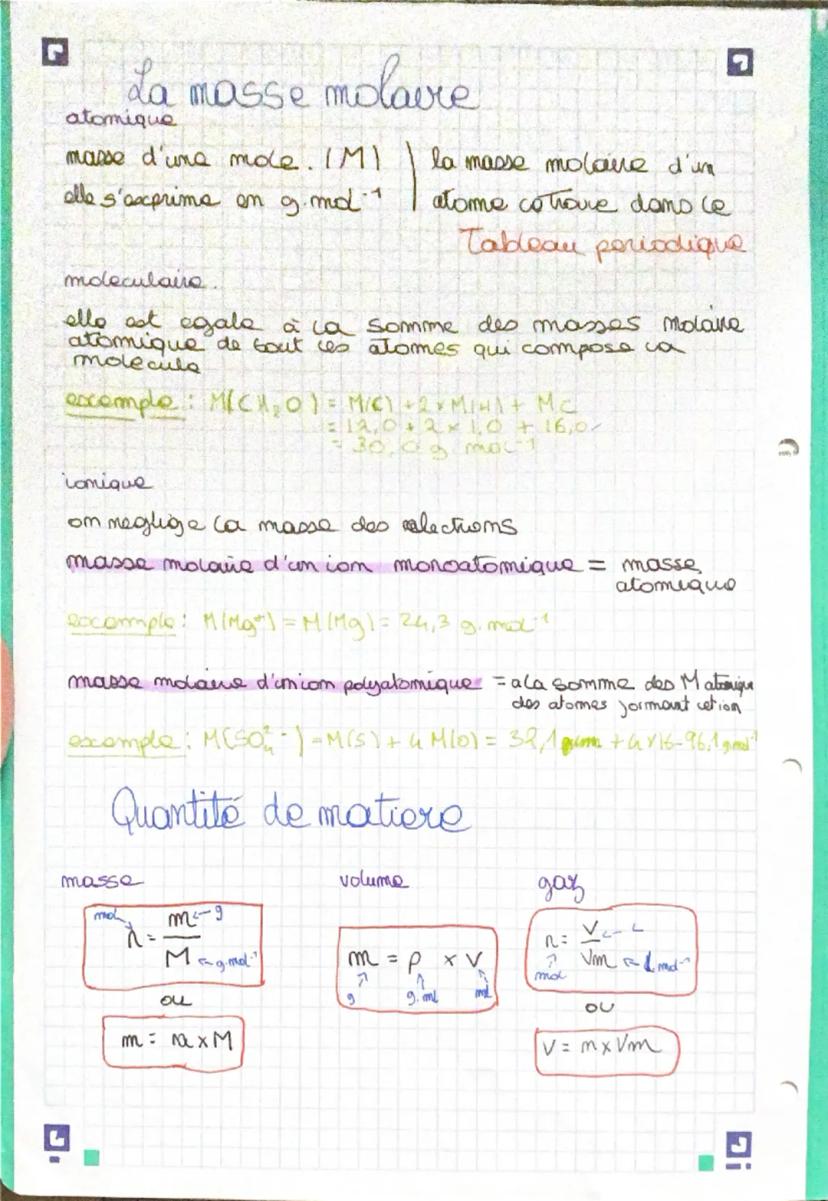 La masse molaire
atomique
masse d'une mole. (M)
elle s'exprime en g.mol⁻¹
la masse molaire d'un
atome co trouve dans le
Tableau periodique
moleculaire.
elle est egale à la somme des masses molaire
atomique de tout les atomes qui compose la
molecule
excemple : M(CH₂O) = M(C) + 2 × M(H) + MC
= 12,0 + 2 × 1,0 + 16,0
= 30,0 g mol⁻¹
ionique
on neglige la masse des electrons
masse molaire d'un ion monoatomique = masse
atomique
excemple : M(Mg²⁺) = M(Mg) = 24,3 g.mol⁻¹
masse molaire d'un ion polyatomique = a la somme des M atomique
des atomes formant cet ion
example : M(SO₄²⁻) = M(S) + 4 M(O) = 32,1 + 4×16 = 96,1 g.mol⁻¹
Quantité de matiere
masse
mol
n = m / M
g
g.mol⁻¹
ou
m = n x M
volume
m = ρ x v
g
g.ml
ml
gaz
n = V / Vm
L
mol
L mol⁻¹
ou
V = n x Vm